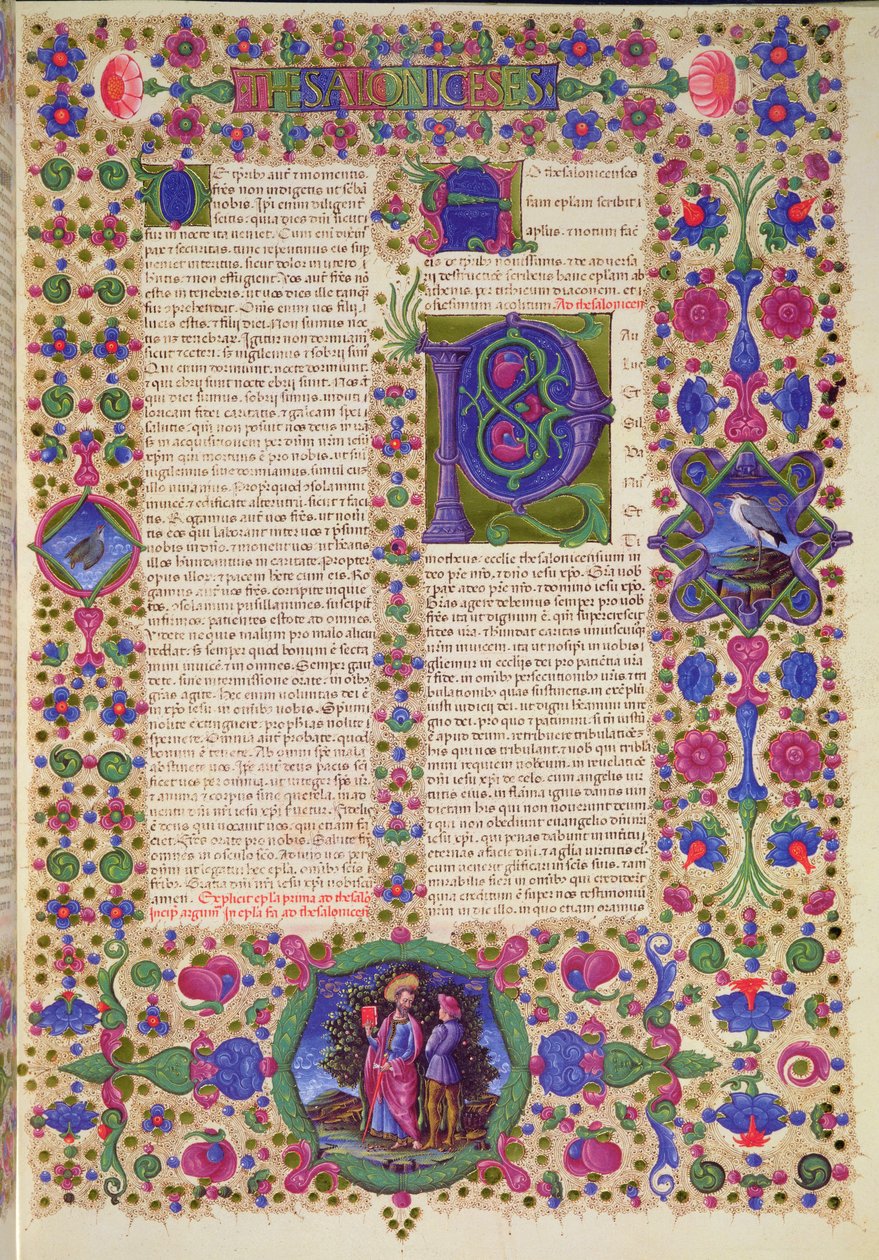 THESALONICESES
De tpribȝ aut̃ ⁊ momentis
frẽs non indigetis ut scbã
nobis. Ipi enim diligent̃
scitis. quia dies dñi sicut
fur in nocte ita veniet. Cum eni dixeñt
pax ⁊ securitas. tunc repentinus eis supe
veniet interitus. sicut dolor in utero
hñtis. ⁊ non effugient. Vos aut̃ frẽs nõ
estis in tenebris. ut vos dies ille tanqȝ
fur apprehendat. Omnes enim vos filij
lucis estis. ⁊ filij diei. Non sumus noc
tis neqȝ tenebrar. Igitur non dormiam
sicut ⁊ ceteri. sȝ vigilemus ⁊ sobrij sim
Qui enim dormiunt. nocte dormiunt
⁊ qui ebrij sunt nocte ebrij sunt. Nos
qui diei sumus. sobrij simus. induti
loricam fidei caritatis. ⁊ galeam spei
salutis. qm̃ non posuit nos deus in irã
sȝ in acquisitionem per dñm nrm̃ iesu
xpm̃ qui mortuus ẽ pro nobis. ut siue
vigilemus siue dormiamus. simul cum
illo viuamus. Propt̃ quod ꝯsolamini
inuicẽ. ⁊ edificate alterutrũ. sicut ⁊ faci
tis. Rogamus aut̃ vos frẽs. ut nouit̃
eos qui laborant inter vos ⁊ p̃sunt
vobis in dño. ⁊ monent vos. ut hẽatis
illos habundantius in caritate. Propter
opus illor. ⁊ pacem hẽte cum eis. Ro
gamus aut̃ vos frẽs. corripite inquie
tos. ꝯsolamini pusillanimes. suscipite
infirmos. patientes estote ad omnes
Videte ne quis malum pro malo alicui
reddat. sȝ semper quod bonum ẽ secta
mini inuicẽ ⁊ in omnes. Semper gau
dete. sine intermissione orate. in oĩbȝ
gras agite. hec enim voluntas dei ẽ
in xp̃o iesu. in omĩbȝ vobis. Spiritum
nolite extinguere. prophetias nolite
spernere. Omnia aut̃ probate. quod
bonum ẽ tenete. Ab omni spẽ mala
abstinete vos. Ipe aut̃ deus pacis sc̃i
ficet vos per omnia. ut integer sp̃s vr̃
⁊ anima ⁊ corpus sine querela. in ad
uentu dñi nri iesu xp̃i seruetur. Fidelis
ẽ deus qui vocauit vos. qui etiam fa
ciet. Frẽs orate pro nobis. Salutate
omnes in osculo sc̃o. Adiuro vos per
dñm ut legatur hec epla omnibus scis
fribȝ. Gratia dñi nri iesu xp̃i vobiscũ
amen. Explicit epla prima ad thesalo
Incip̃ argum̃ In epla sc̃a ad thesalonicen̄
AD thesalonicenses
scd̃am eplam scribit
aplus. ⁊ notum fac̃
eis de tpribȝ nouissimis. ⁊ de aduersa
rij destructiõe. scribens hanc eplam ab
athenis. per titicum diaconem. et
onesimum acolitum. Ad thesalonicen̄
PAu
lus
Et
Sil
Va
Nus
Et
Ti
motheus. ecclie thesalonicensium in
deo prẽ nrõ. ⁊ dño iesu xp̃o. Gra vob̃
⁊ pax a deo prẽ nrõ. ⁊ domino iesu xp̃o
Gras agere debemus semper pro vob̃
frẽs ita ut dignum ẽ. qm̃ supercrescit
fides vra. ⁊ habundat caritas uniuscuiqȝ
vrm̃ inuicem. ita ut nos ipi in vobis
gliemur in ecclijs dei pro patiẽtia vra
⁊ fide. in omibȝ persecutionibȝ vris ⁊ tri
bulationibȝ quas sustinetis. in exẽplũ
iusti iudicij dei. ut digni hẽamini in re
gno dei. pro quo ⁊ patimini. si tñ iustũ
ẽ apud deum. retribuere tribulatiõez
his qui vos tribulant. ⁊ vob̃ qui tribla
mini requiem nobiscum. in reuelatiõe
dñi iesu xp̃i de celo. cum angelis vir
tutis eius. in flãma ignis dantis vin
dictam his qui non nouerunt deum
⁊ qui non obediunt euangelio dñi nri
iesu xp̃i. qui penas dabunt in interitu
eternas a facie dñi. ⁊ a glia virtutis eius
cum venerit glificari in scis suis. ⁊ am
mirabilis fieri in omibȝ qui crediderũt
quia creditum ẽ super nos testimoniũ
nrm̃ in die illo. in quo etiam oramus